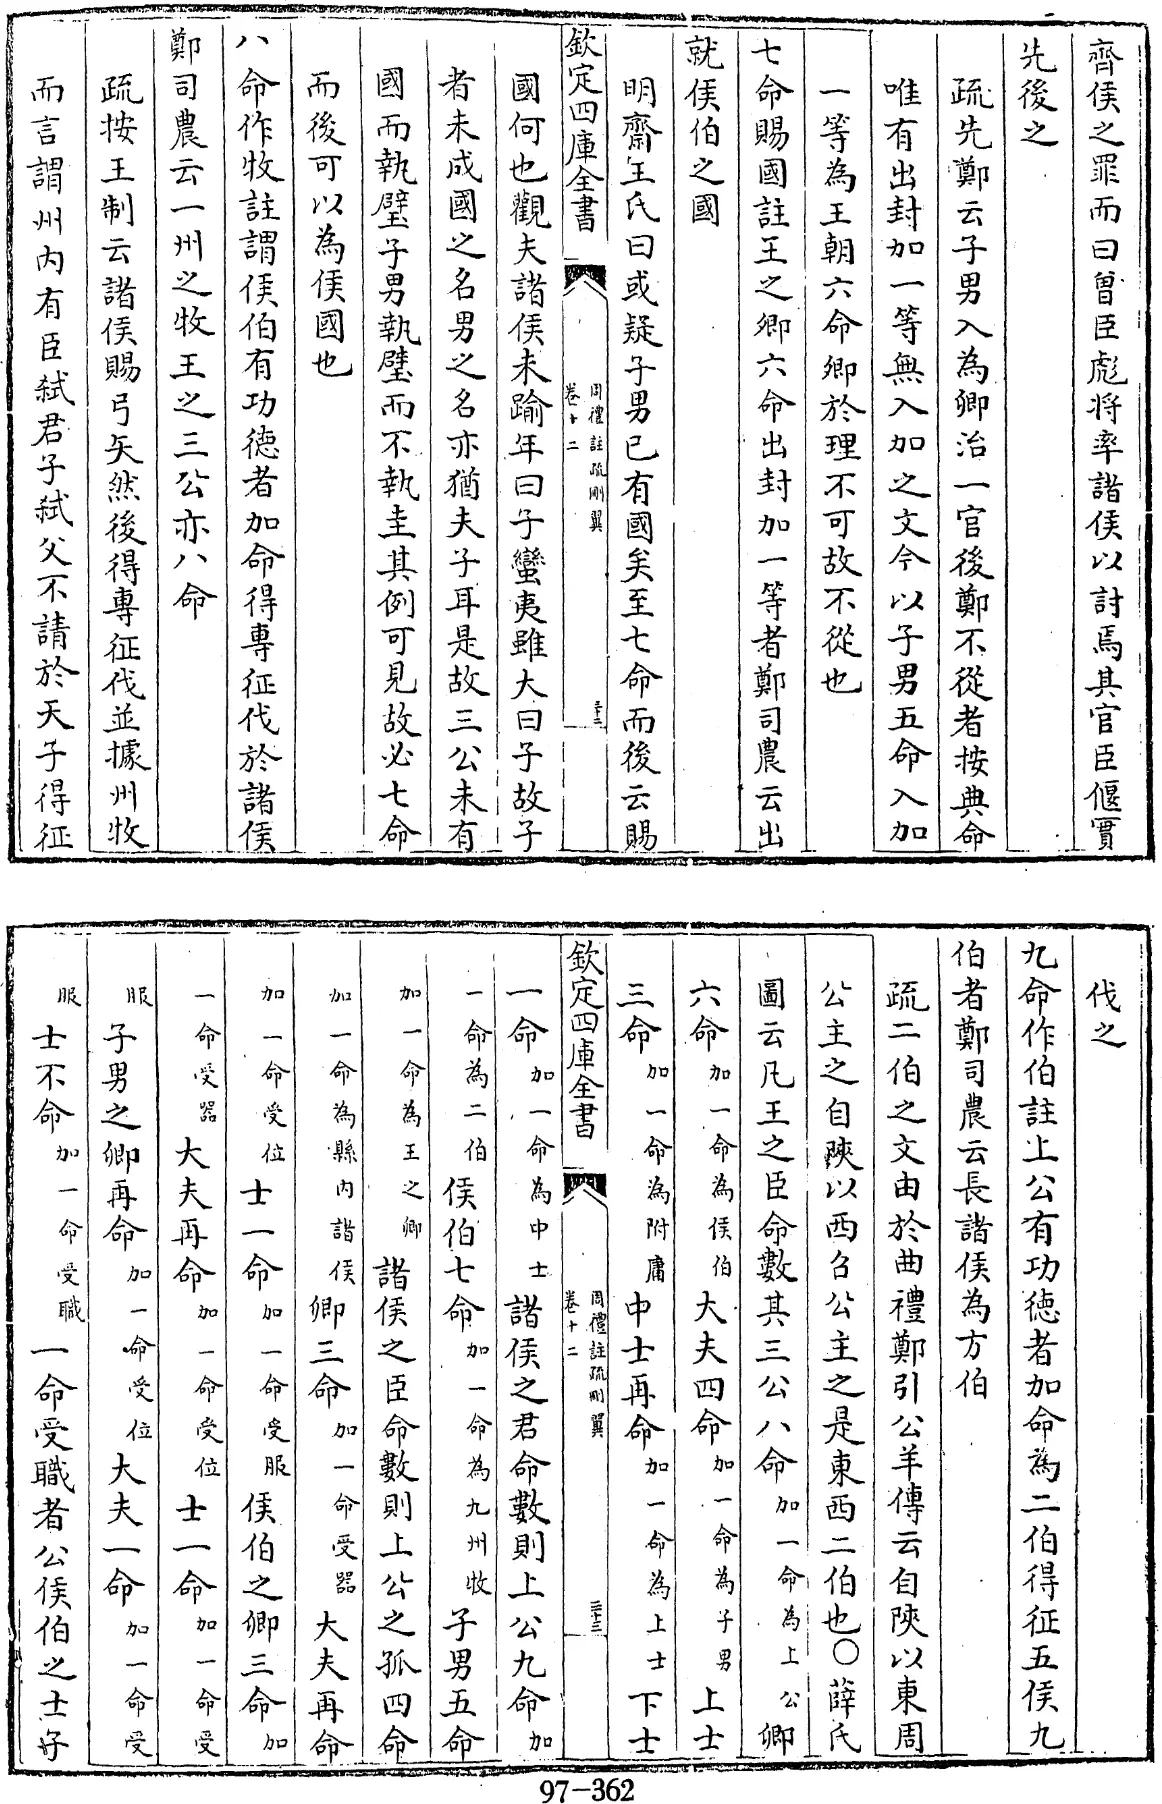 齊侯之罪而曰曾臣彪将率諸侯以討焉其官臣偃實
先後之
疏先鄭云子男入為卿治一官後鄭不從者按典命
唯有出封加一等無入加之文今以子男五命入加
一等為王朝六命卿於理不可故不從也
七命賜國註王之卿六命出封加一等者鄭司農云出
就侯伯之國
明齋王氏曰或疑子男已有國矣至七命而後云賜
欽定四庫全書
周禮註疏刪翼
卷十二
三十二
國何也觀夫諸侯未踰年曰子蠻夷雖大曰子故子
者未成國之名男之名亦猶夫子耳是故三公未有
國而執璧子男執璧而不執圭其例可見故必七命
而後可以為侯國也
八命作牧註謂侯伯有功德者加命得專征伐於諸侯
鄭司農云一州之牧王之三公亦八命
疏按王制云諸侯賜弓矢然後得專征伐並據州牧
而言謂州内有臣弑君子弑父不請於天子得征
伐之
九命作伯註上公有功德者加命為二伯得征五侯九
伯者鄭司農云長諸侯為方伯
疏二伯之文由於曲禮鄭引公羊傳云自陝以東周
公主之自陝以西召公主之是東西二伯也○薛氏
圖云凡王之臣命數其三公八命加一命為上公卿
六命加一命為侯伯大夫四命加一命為子男上士
三命加一命為附庸中士再命加一命為上士下士
欽定四庫全書
周禮註疏刪翼
卷十二
三十三
一命加一命為中士諸侯之君命數則上公九命加
一命為二伯侯伯七命加一命為九州牧子男五命
加一命為王之卿諸侯之臣命數則上公之孤四命
加一命為縣内諸侯卿三命加一命受器大夫再命
加一命受位士一命加一命受服侯伯之卿三命加
一命受器大夫再命加一命受位士一命加一命受
服子男之卿再命加一命受位大夫一命加一命受
服士不命加一命受職一命受職者公侯伯之士子
97-362